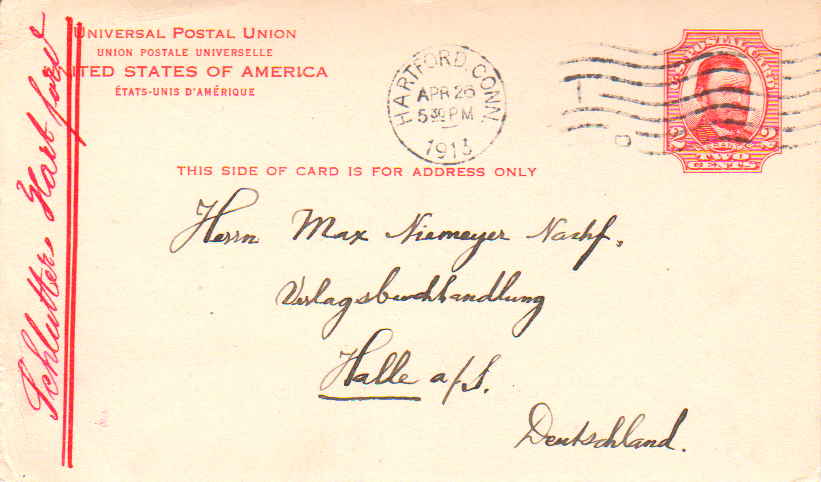 UNIVERSAL POSTAL UNION
UNION POSTALE UNIVERSELLE
UNITED STATES OF AMERICA
ÉTATS-UNIS D'AMÉRIQUE
HARTFORD CONN.
APR 26
5 30 PM
1913
U.S. POSTAL CARD
2 2
TWO
CENTS
THIS SIDE OF CARD IS FOR ADDRESS ONLY
Herrn Max Niemeyer Nachf.,
Verlagsbuchhandlung
Halle a/S.
Deutschland.
Schlutter Hartford